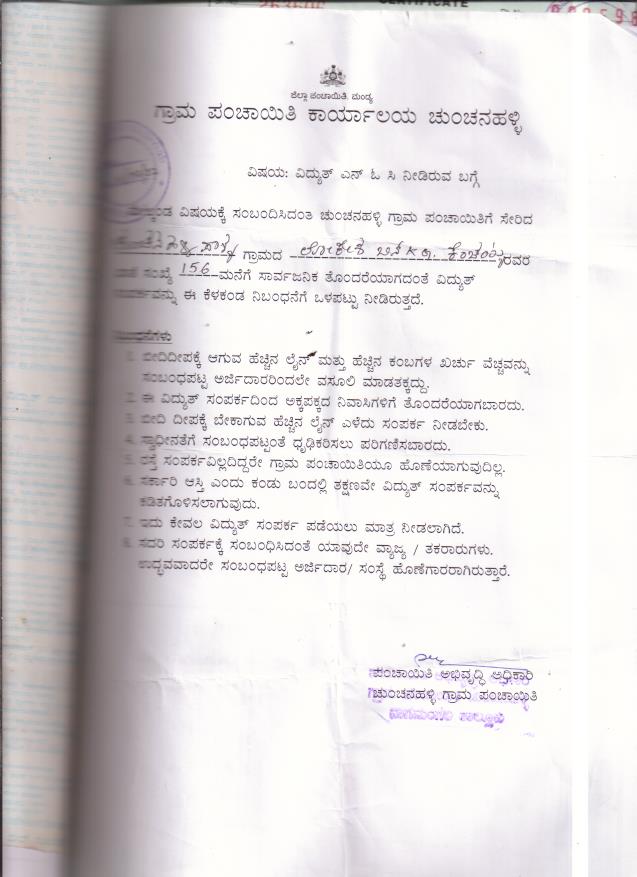 CERTIFICATE
ಜಿಲ್ಲಾ ಪಂಚಾಯಿತಿ, ಮಂಡ್ಯ
ಗ್ರಾಮ ಪಂಚಾಯಿತಿ ಕಾರ್ಯಾಲಯ ಚುಂಚನಹಳ್ಳಿ
ವಿಷಯ: ವಿದ್ಯುತ್ ಎನ್ ಓ ಸಿ ನೀಡಿರುವ ಬಗ್ಗೆ
ವಿಷಯಕ್ಕೆ ಸಂಬಂದಿಸಿದಂತೆ ಚುಂಚನಹಳ್ಳಿ ಗ್ರಾಮ ಪಂಚಾಯಿತಿಗೆ ಸೇರಿದ
ಗ್ರಾಮದ ಲೋಕೇಶ ರವರ
ಸಂಖ್ಯೆ 156 ಮನೆಗೆ ಸಾರ್ವಜನಿಕ ತೊಂದರೆಯಾಗದಂತೆ ವಿದ್ಯುತ್
ಈ ಕೆಳಕಂಡ ನಿಬಂಧನೆಗೆ ಒಳಪಟ್ಟು ನೀಡಿರುತ್ತದೆ.
1. ಬೀದಿದೀಪಕ್ಕೆ ಆಗುವ ಹೆಚ್ಚಿನ ಲೈನ್ ಮತ್ತು ಹೆಚ್ಚಿನ ಕಂಬಗಳ ಖರ್ಚು ವೆಚ್ಚವನ್ನು
ಸಂಬಂಧಪಟ್ಟ ಅರ್ಜಿದಾರರಿಂದಲೇ ವಸೂಲಿ ಮಾಡತಕ್ಕದ್ದು.
2. ಈ ವಿದ್ಯುತ್ ಸಂಪರ್ಕದಿಂದ ಅಕ್ಕಪಕ್ಕದ ನಿವಾಸಿಗಳಿಗೆ ತೊಂದರೆಯಾಗಬಾರದು.
3. ಬೀದಿ ದೀಪಕ್ಕೆ ಬೇಕಾಗುವ ಹೆಚ್ಚಿನ ಲೈನ್ ಎಳೆದು ಸಂಪರ್ಕ ನೀಡಬೇಕು.
4. ಸ್ವಾಧೀನತೆಗೆ ಸಂಬಂಧಪಟ್ಟಂತೆ ಧೃಢಿಕರಿಸಲು ಪರಿಗಣಿಸಬಾರದು.
5. ರಸ್ತೆ ಸಂಪರ್ಕವಿಲ್ಲದಿದ್ದರೇ ಗ್ರಾಮ ಪಂಚಾಯಿತಿಯೂ ಹೊಣೆಯಾಗುವುದಿಲ್ಲ.
6. ಸರ್ಕಾರಿ ಆಸ್ತಿ ಎಂದು ಕಂಡು ಬಂದಲ್ಲಿ ತಕ್ಷಣವೇ ವಿದ್ಯುತ್ ಸಂಪರ್ಕವನ್ನು
ಕಡಿತಗೊಳಿಸಲಾಗುವುದು.
7. ಇದು ಕೇವಲ ವಿದ್ಯುತ್ ಸಂಪರ್ಕ ಪಡೆಯಲು ಮಾತ್ರ ನೀಡಲಾಗಿದೆ.
8. ಸದರಿ ಸಂಪರ್ಕಕ್ಕೆ ಸಂಬಂಧಿಸಿದಂತೆ ಯಾವುದೇ ವ್ಯಾಜ್ಯ / ತಕರಾರುಗಳು.
ಉದ್ಭವವಾದರೇ ಸಂಬಂಧಪಟ್ಟ ಅರ್ಜಿದಾರ/ ಸಂಸ್ಥೆ ಹೊಣೆಗಾರರಾಗಿರುತ್ತಾರೆ.
ಪಂಚಾಯಿತಿ ಅಭಿವೃದ್ಧಿ ಅಧಿಕಾರಿ
ಚುಂಚನಹಳ್ಳಿ ಗ್ರಾಮ ಪಂಚಾಯಿತಿ
ನಾಗಮಂಗಲ ತಾಲ್ಲೂಕು